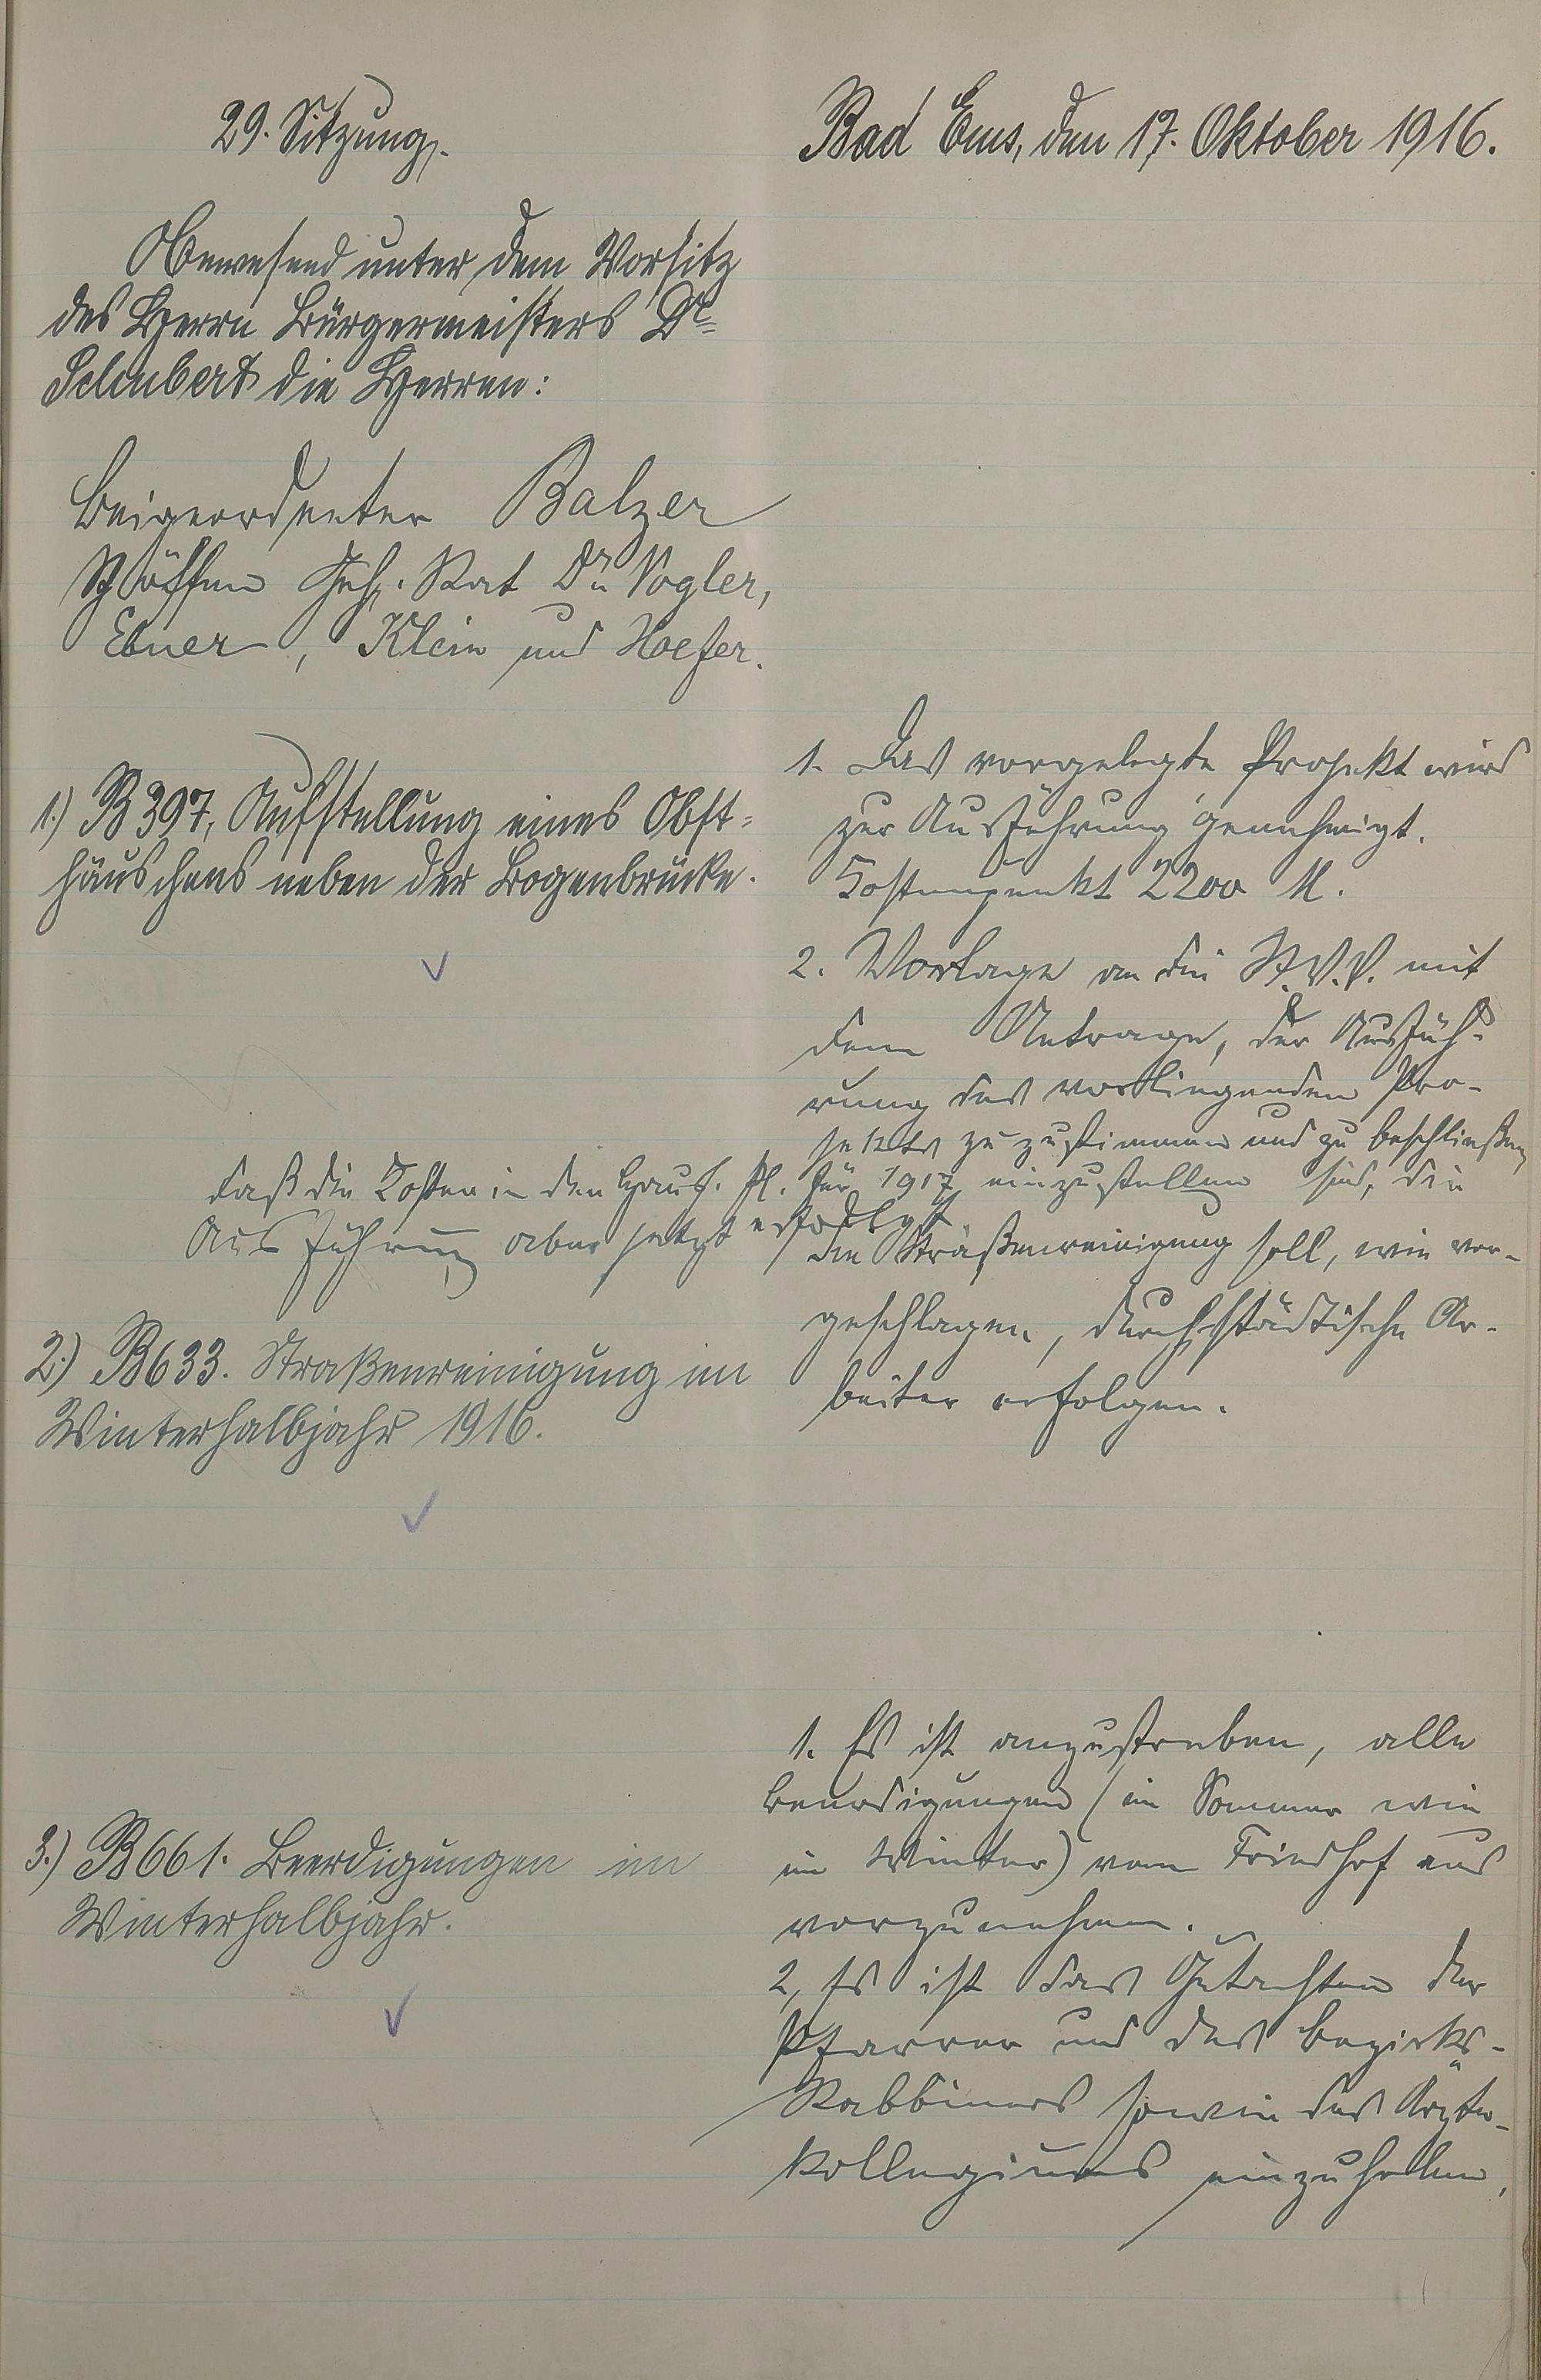 29. Sitzung.
Bad Ems, den 17. Oktober 1916.
Anwesend unter dem Vorsitz
des Herrn Bürgermeisters Dr.
Schubert die Herren:
Beigeordneter Balzer
Schöffen Geh. Rat Dr. Vogler,
Ebner, Klein und Hoefer.
1.) B 397, Aufstellung eines Obst-
häuschens neben der Bogenbrücke.
1. Das vorgelegte Projekt wird
zur Ausführung genehmigt.
Kostenpunkt 2200 M.
2. Vorlage an die St.V.V. mit
dem Antrage, der Ausfüh-
rung des vorliegenden Pro-
jekts zuzustimmen und zu beschließen,
daß die Kosten in den Haush. Pl. für 1917 einzustellen sind, die
Ausführung aber jetzt erfolgt.
2.) B 633. Straßenreinigung im
Winterhalbjahr 1916.
Die Straßenreinigung soll, wie vor-
geschlagen, durch städtische Ar-
beiter erfolgen.
3.) B 661. Beerdigungen im
Winterhalbjahr.
1. Es ist anzustreben, alle
Beerdigungen (im Sommer wie
im Winter) vom Friedhof aus
vorzunehmen.
2, Es ist das Gutachten der
Pfarrer und des Bezirks-
Rabbiners sowie des Ärzte-
kollegiums einzuholen,